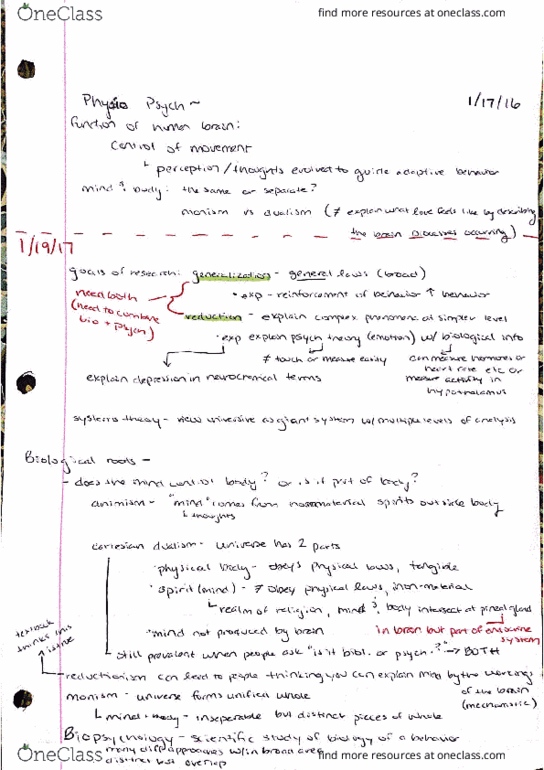 OneClass
find more resources at oneclass.com
Physio Psych ~
1/17/16
function of human brain:
control of movement
perception/thoughts evolved to guide adaptive behavior
mind & body: the same or separate?
monism vs dualism (≠ explain what love feels like by describing
the brain processes occurring)
1/19/17
goals of research: generalization - general laws (broad)
• exp - reinforcement of behavior ↑ behavior
need both
(need to combine
bio + psych)
reduction - explain complex phenomena at simpler level
• exp explain psych theory (emotion) w/ biological info
≠ touch or measure easily
can measure hormones or
heart rate etc or
measure activity in
hypothalamus
explain depression in neurochemical terms
systems theory - view universe as giant system w/ multiple levels of analysis
Biological roots -
- does the mind control body? or is it part of body?
animism - "mind" comes from nonmaterial spirits outside body
thoughts
cartesian dualism - universe has 2 parts
• physical body - obeys physical laws, tangible
• spirit (mind) - ≠ obey physical laws, non-material
realm of religion, mind & body intersect at pineal gland
in brain but part of endocrine
system
• mind not produced by brain
still prevalent when people ask "is it biol. or psych.?" → BOTH
textbook
thinks this
issue
reductionism can lead to people thinking you can explain mind by the workings
of the brain
(mechanistic)
monism - universe forms unified whole
mind + body - inseperable but distinct pieces of whole
Biopsychology - scientific study of biology of a behavior
many diff approaches w/in broad area
distinct but overlap
OneClass
find more resources at oneclass.com